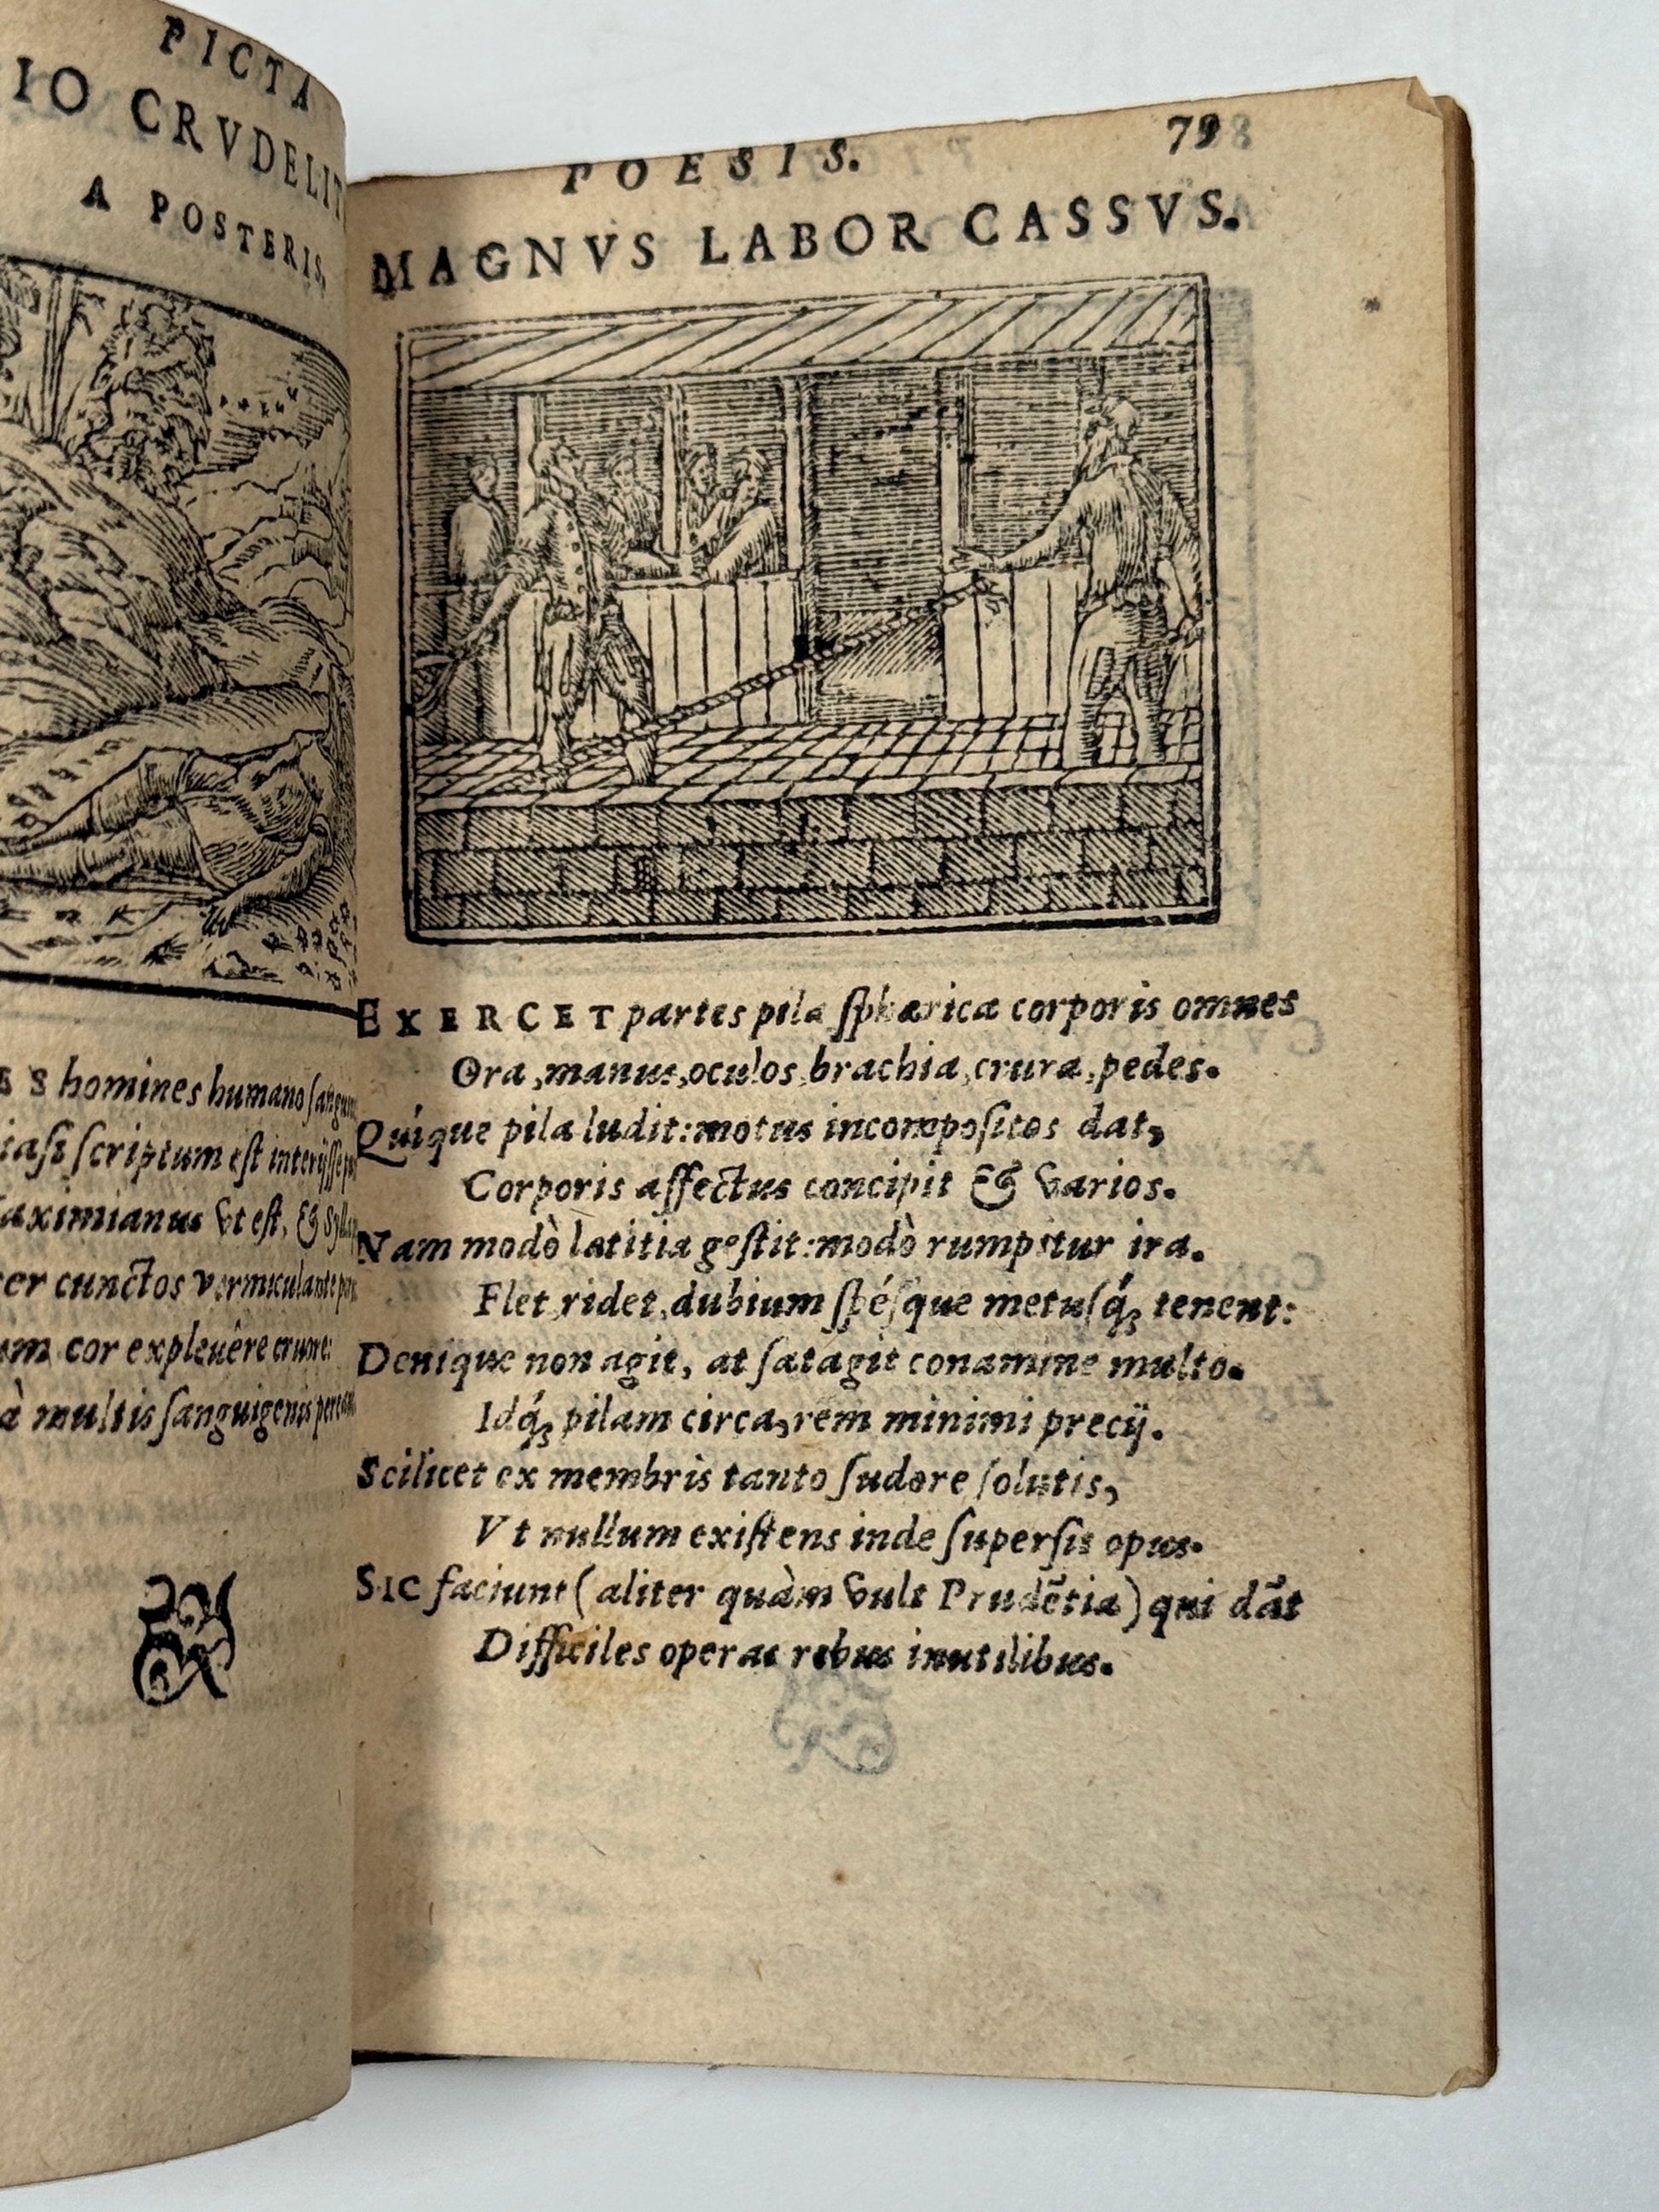 PICTA
IO CRVDELIT
A POSTERIS,
S homines humano
iaſi ſcriptum eſt interijſſe
aximianus vt eſt, &
er cunctos vermiculante
om cor expleuêre
à multis ſanguigenis
POESIS.
79
MAGNVS LABOR CASSVS.
EXERCET partes pila ſphærica corporis omnes
Ora, manus, oculos, brachia, crura, pedes.
Quíque pila ludit: motus incompoſitos dat,
Corporis affectus concipit & varios.
Nam modò lætitia geſtit: modò rumpitur ira.
Flet, ridet, dubium ſpéſque metuſq́; tenent:
Denique non agit, at ſatagit conamine multo.
Idq́; pilam circa, rem minimi precij.
Scilicet ex membris tanto ſudore ſolutis,
Vt nullum exiſtens inde ſuperſit opus.
SIC faciunt (aliter quàm vult Prudẽtia) qui dãt
Difficiles operas rebus inutilibus.